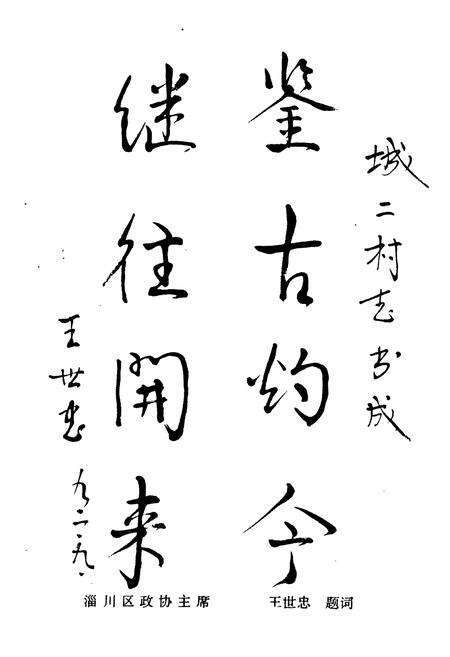 城二村志书成
鉴古灼今
继往開来
王世忠
九二.九.
淄川区政协主席 王世忠 题词